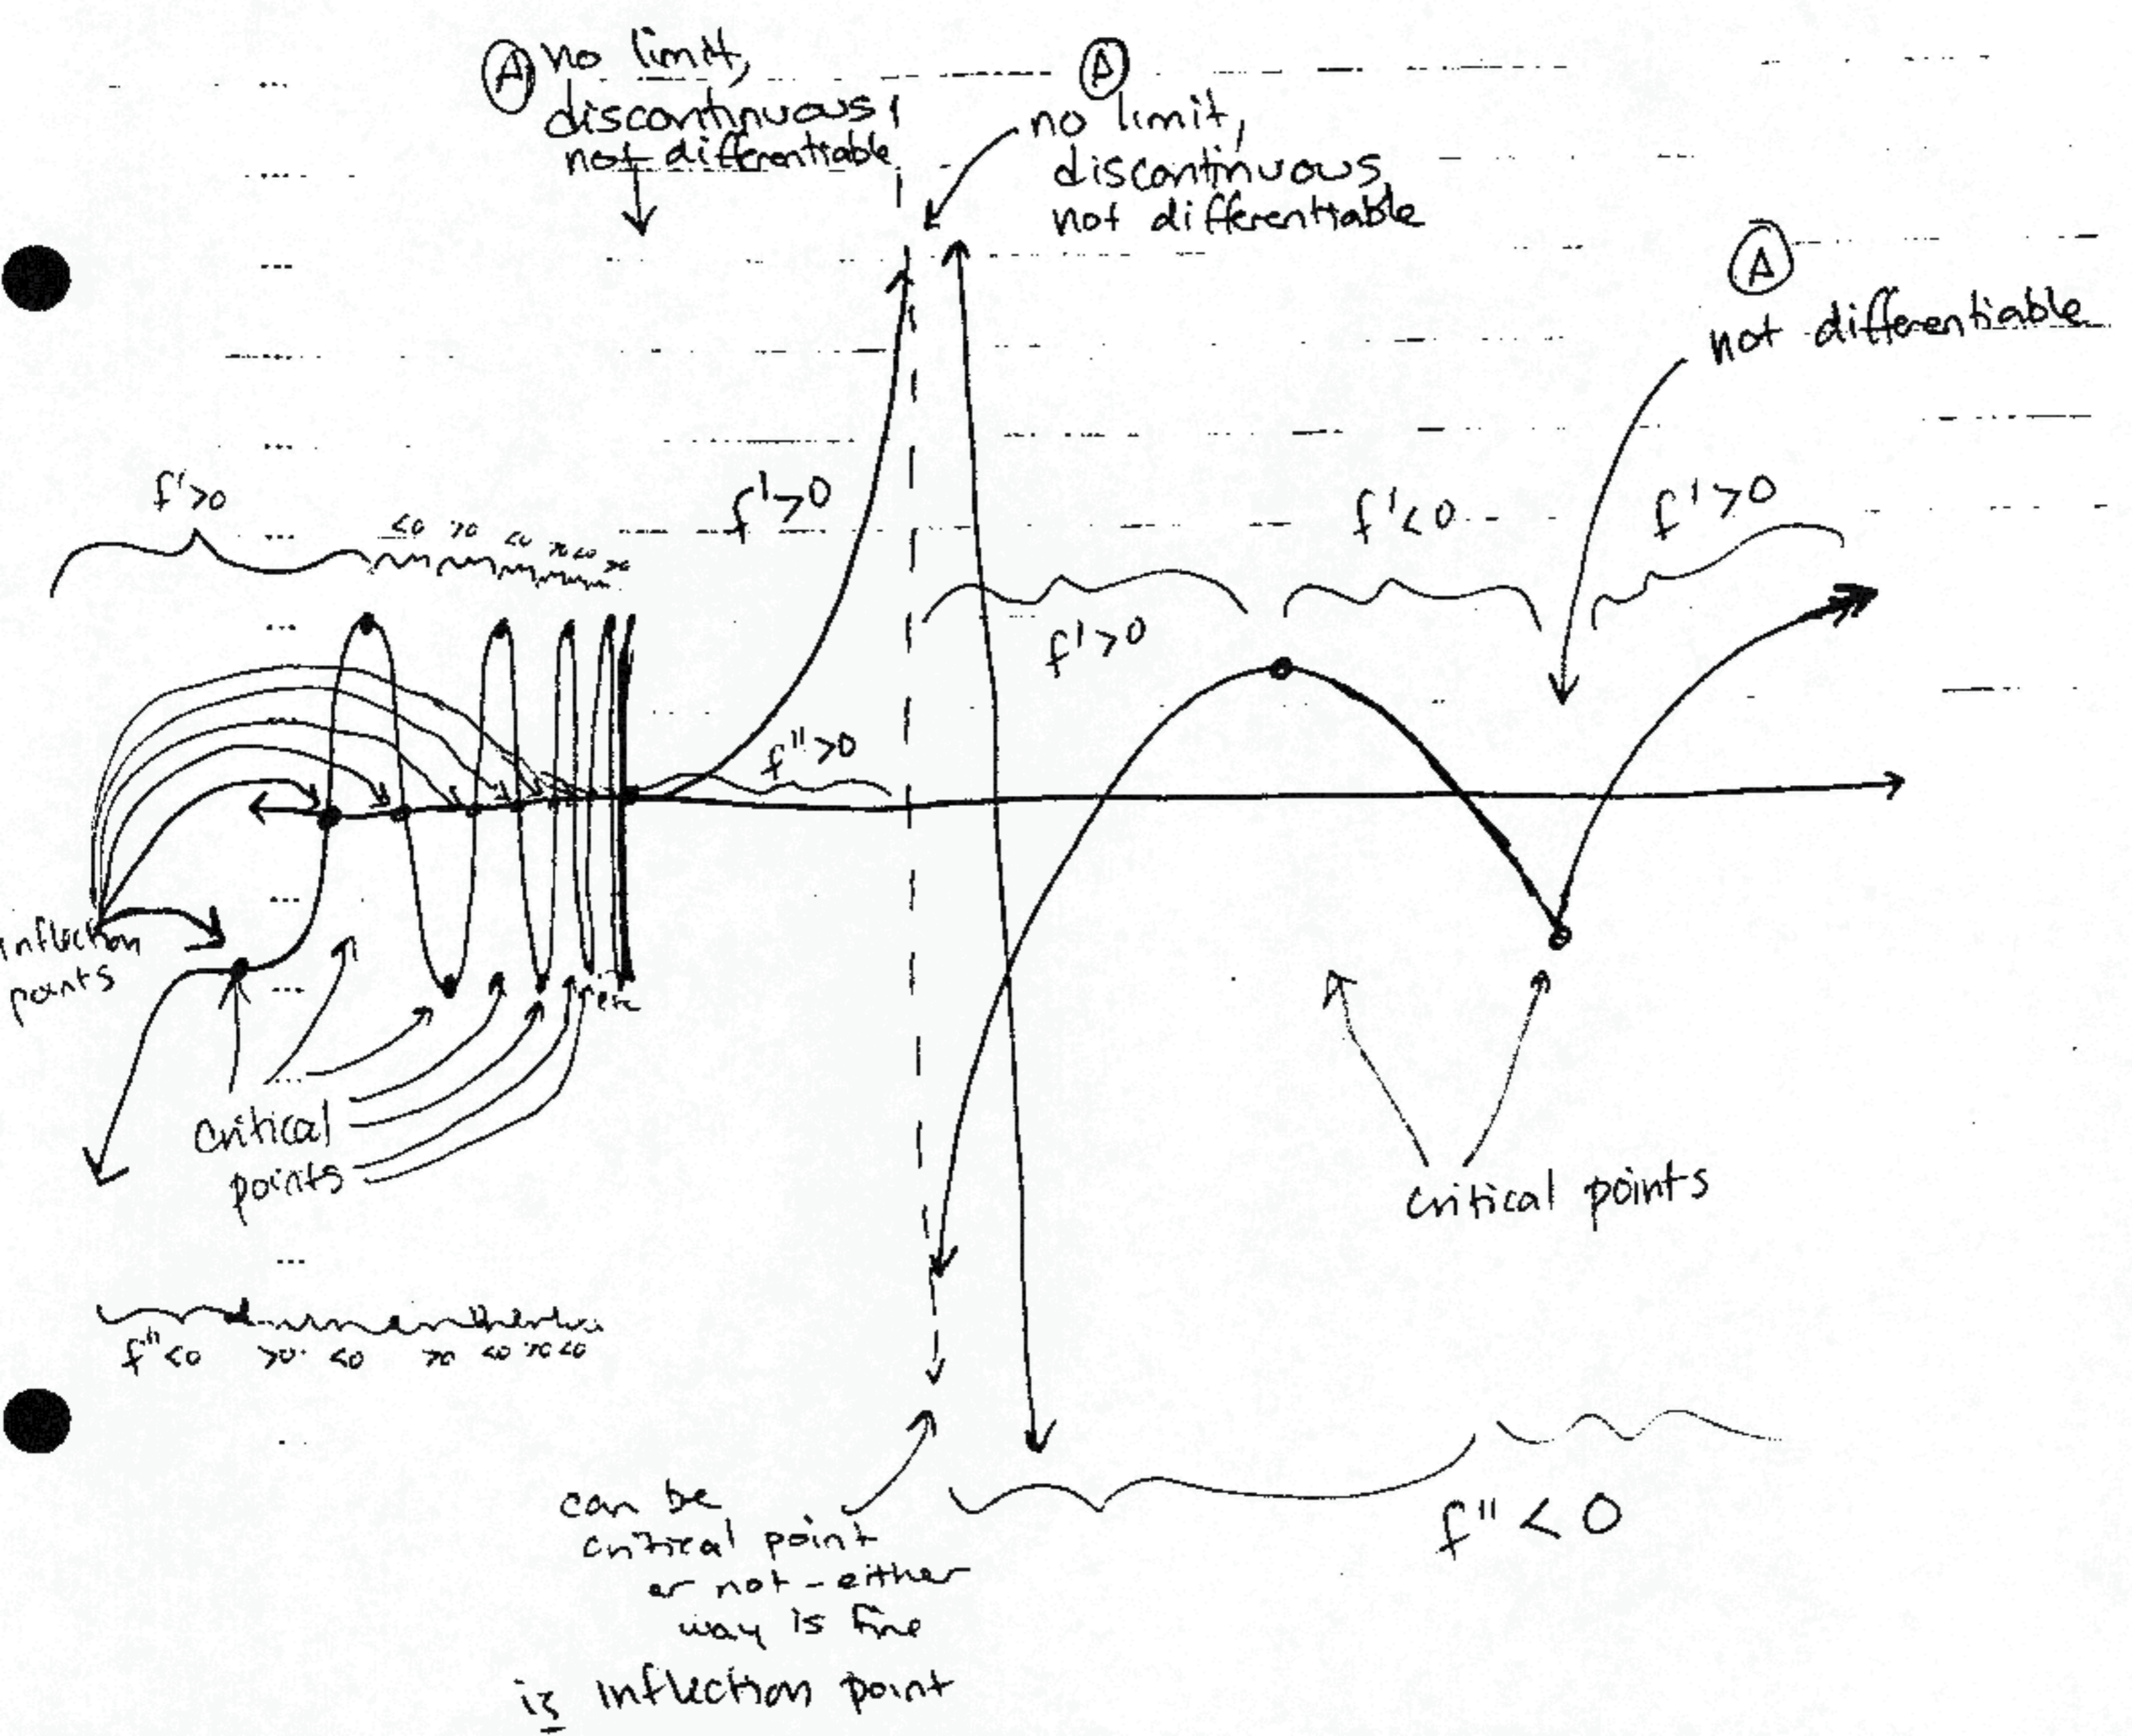 Ⓐ no limit,
discontinuous,
not differentiable
Ⓐ
no limit,
discontinuous,
not differentiable
Ⓐ
not differentiable
f'>0
<0 >0 <0 >0 <0 >0
f'>0
f'>0
f'<0
f'>0
f''>0
inflection
points
etc
critical
points
critical points
f''<0 >0 <0 >0 <0 >0 <0
can be
critical point
or not - either
way is fine
is inflection point
f'' < 0